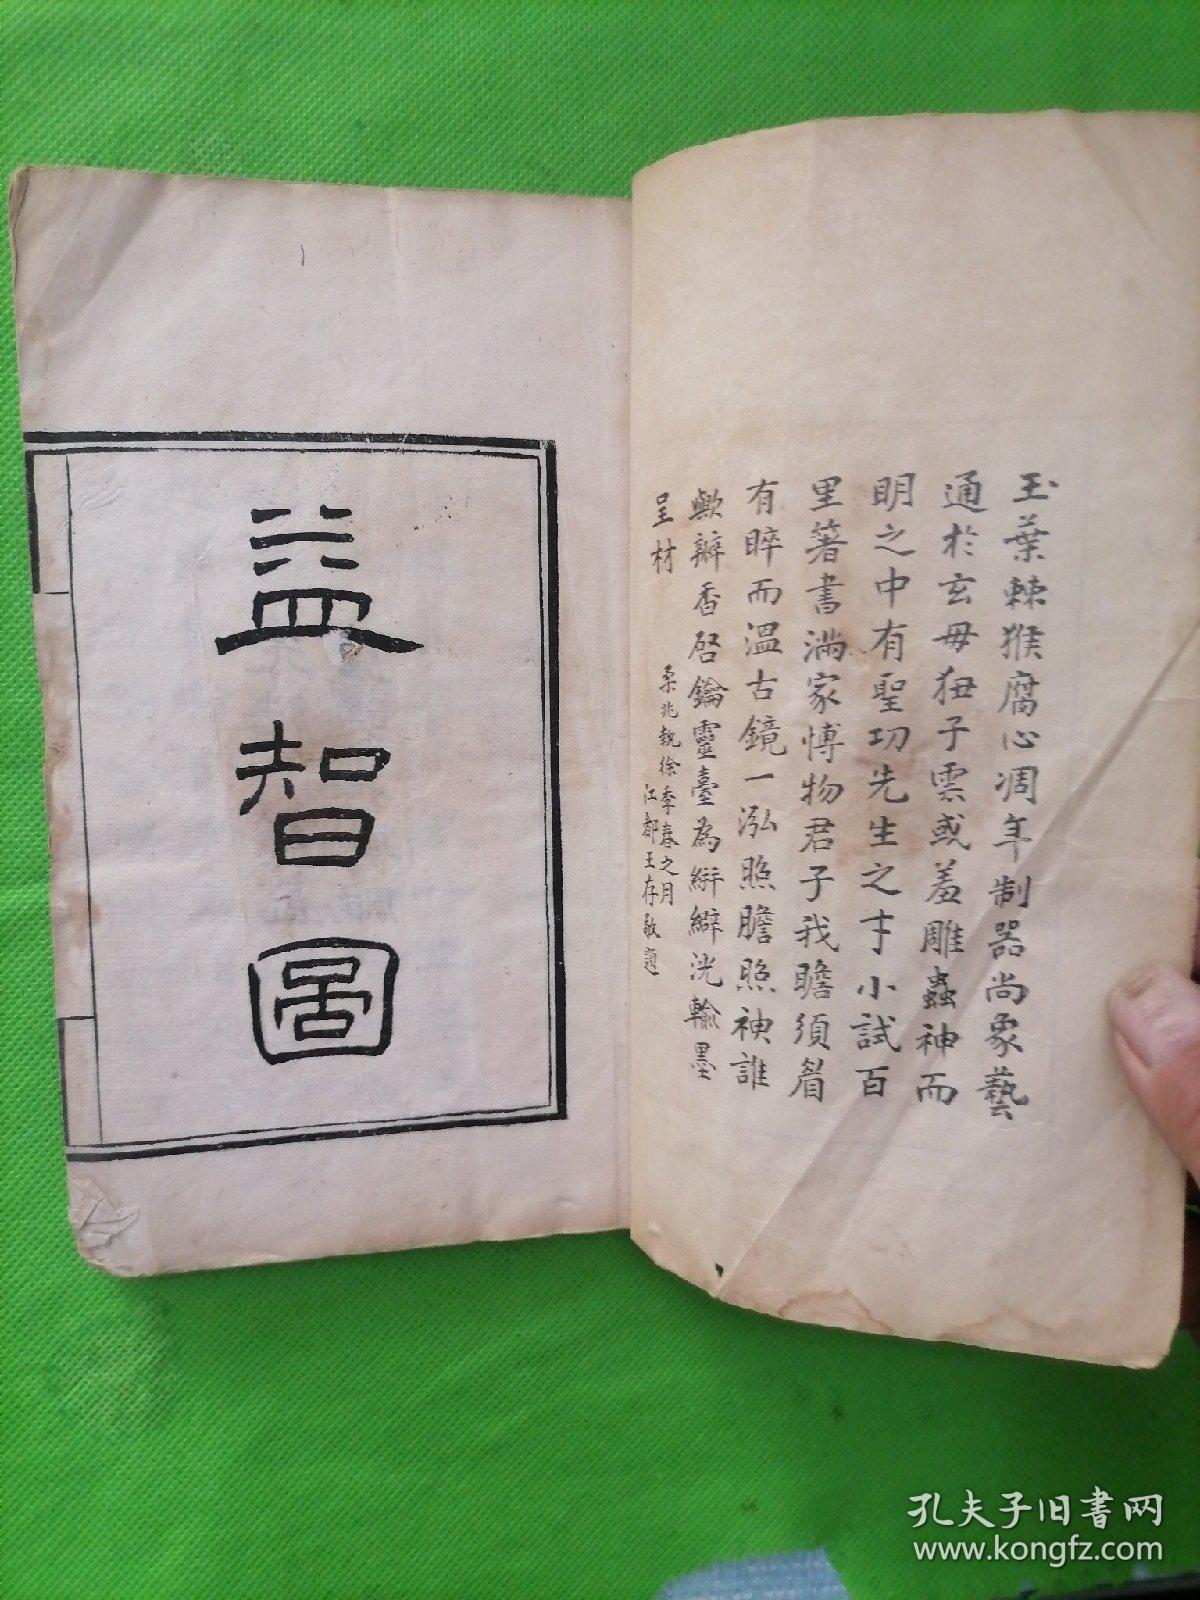 玉葉棘猴腐心凋年制器尚象藝
通於玄毋狃子雲或羞雕蟲神而
明之中有聖功先生之才小試百
里箸書滿家愽物君子我瞻須眉
有睟而温古鏡一泓照膽照神誰
歟瓣香啓鑰靈臺為絣澼洸輸墨
呈材
桑兆執徐季春之月
江都王存敬題
益智圖
孔夫子旧书网
www.kongfz.com